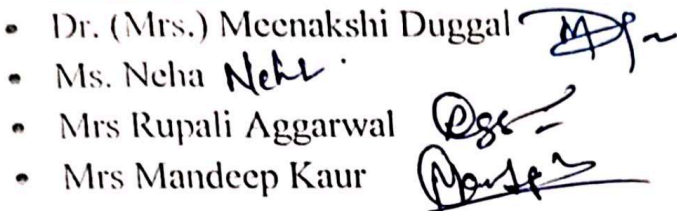 • Dr. (Mrs.) Meenakshi Duggal
• Ms. Neha Neha
• Mrs Rupali Aggarwal
• Mrs Mandeep Kaur